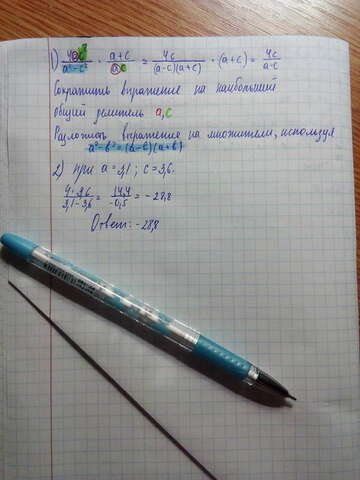 1) 4ac²/(a²-c²) · (a+c)/(ac) = 4c/((a-c)(a+c)) · (a+c) = 4c/(a-c)
Сократить выражение на наибольший
общий делитель a,c
Разложить выражение на множители, используя
a²-b²=(a-b)(a+b)
2) при a=3,1; c=3,6.
4·3,6/(3,1-3,6) = 14,4/(-0,5) = -28,8
Ответ: -28,8